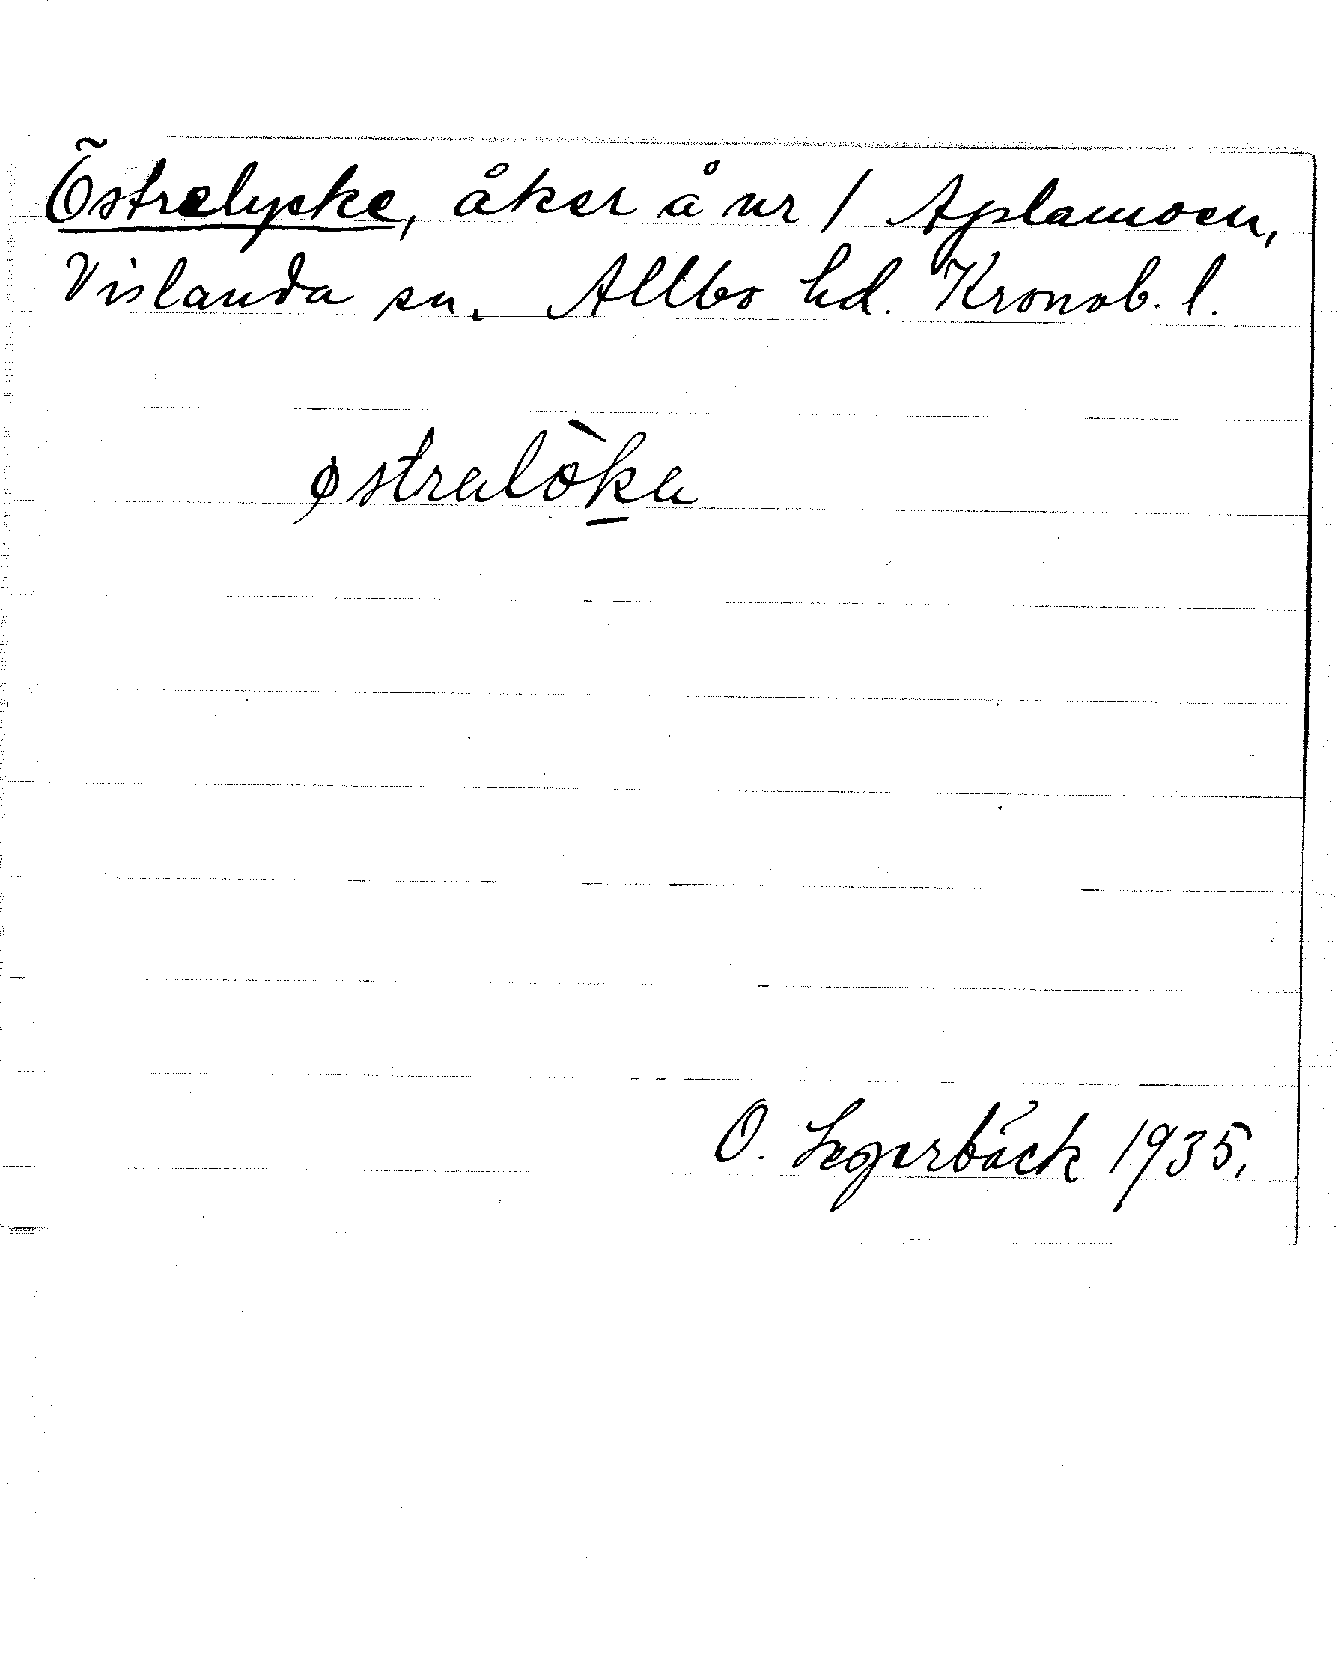 Östrelycke, åker å nr 1 Aplamoen,
Vislanda sn. Allbo hd. Kronob. l.
østralòka
O. Legerbäck 1935.